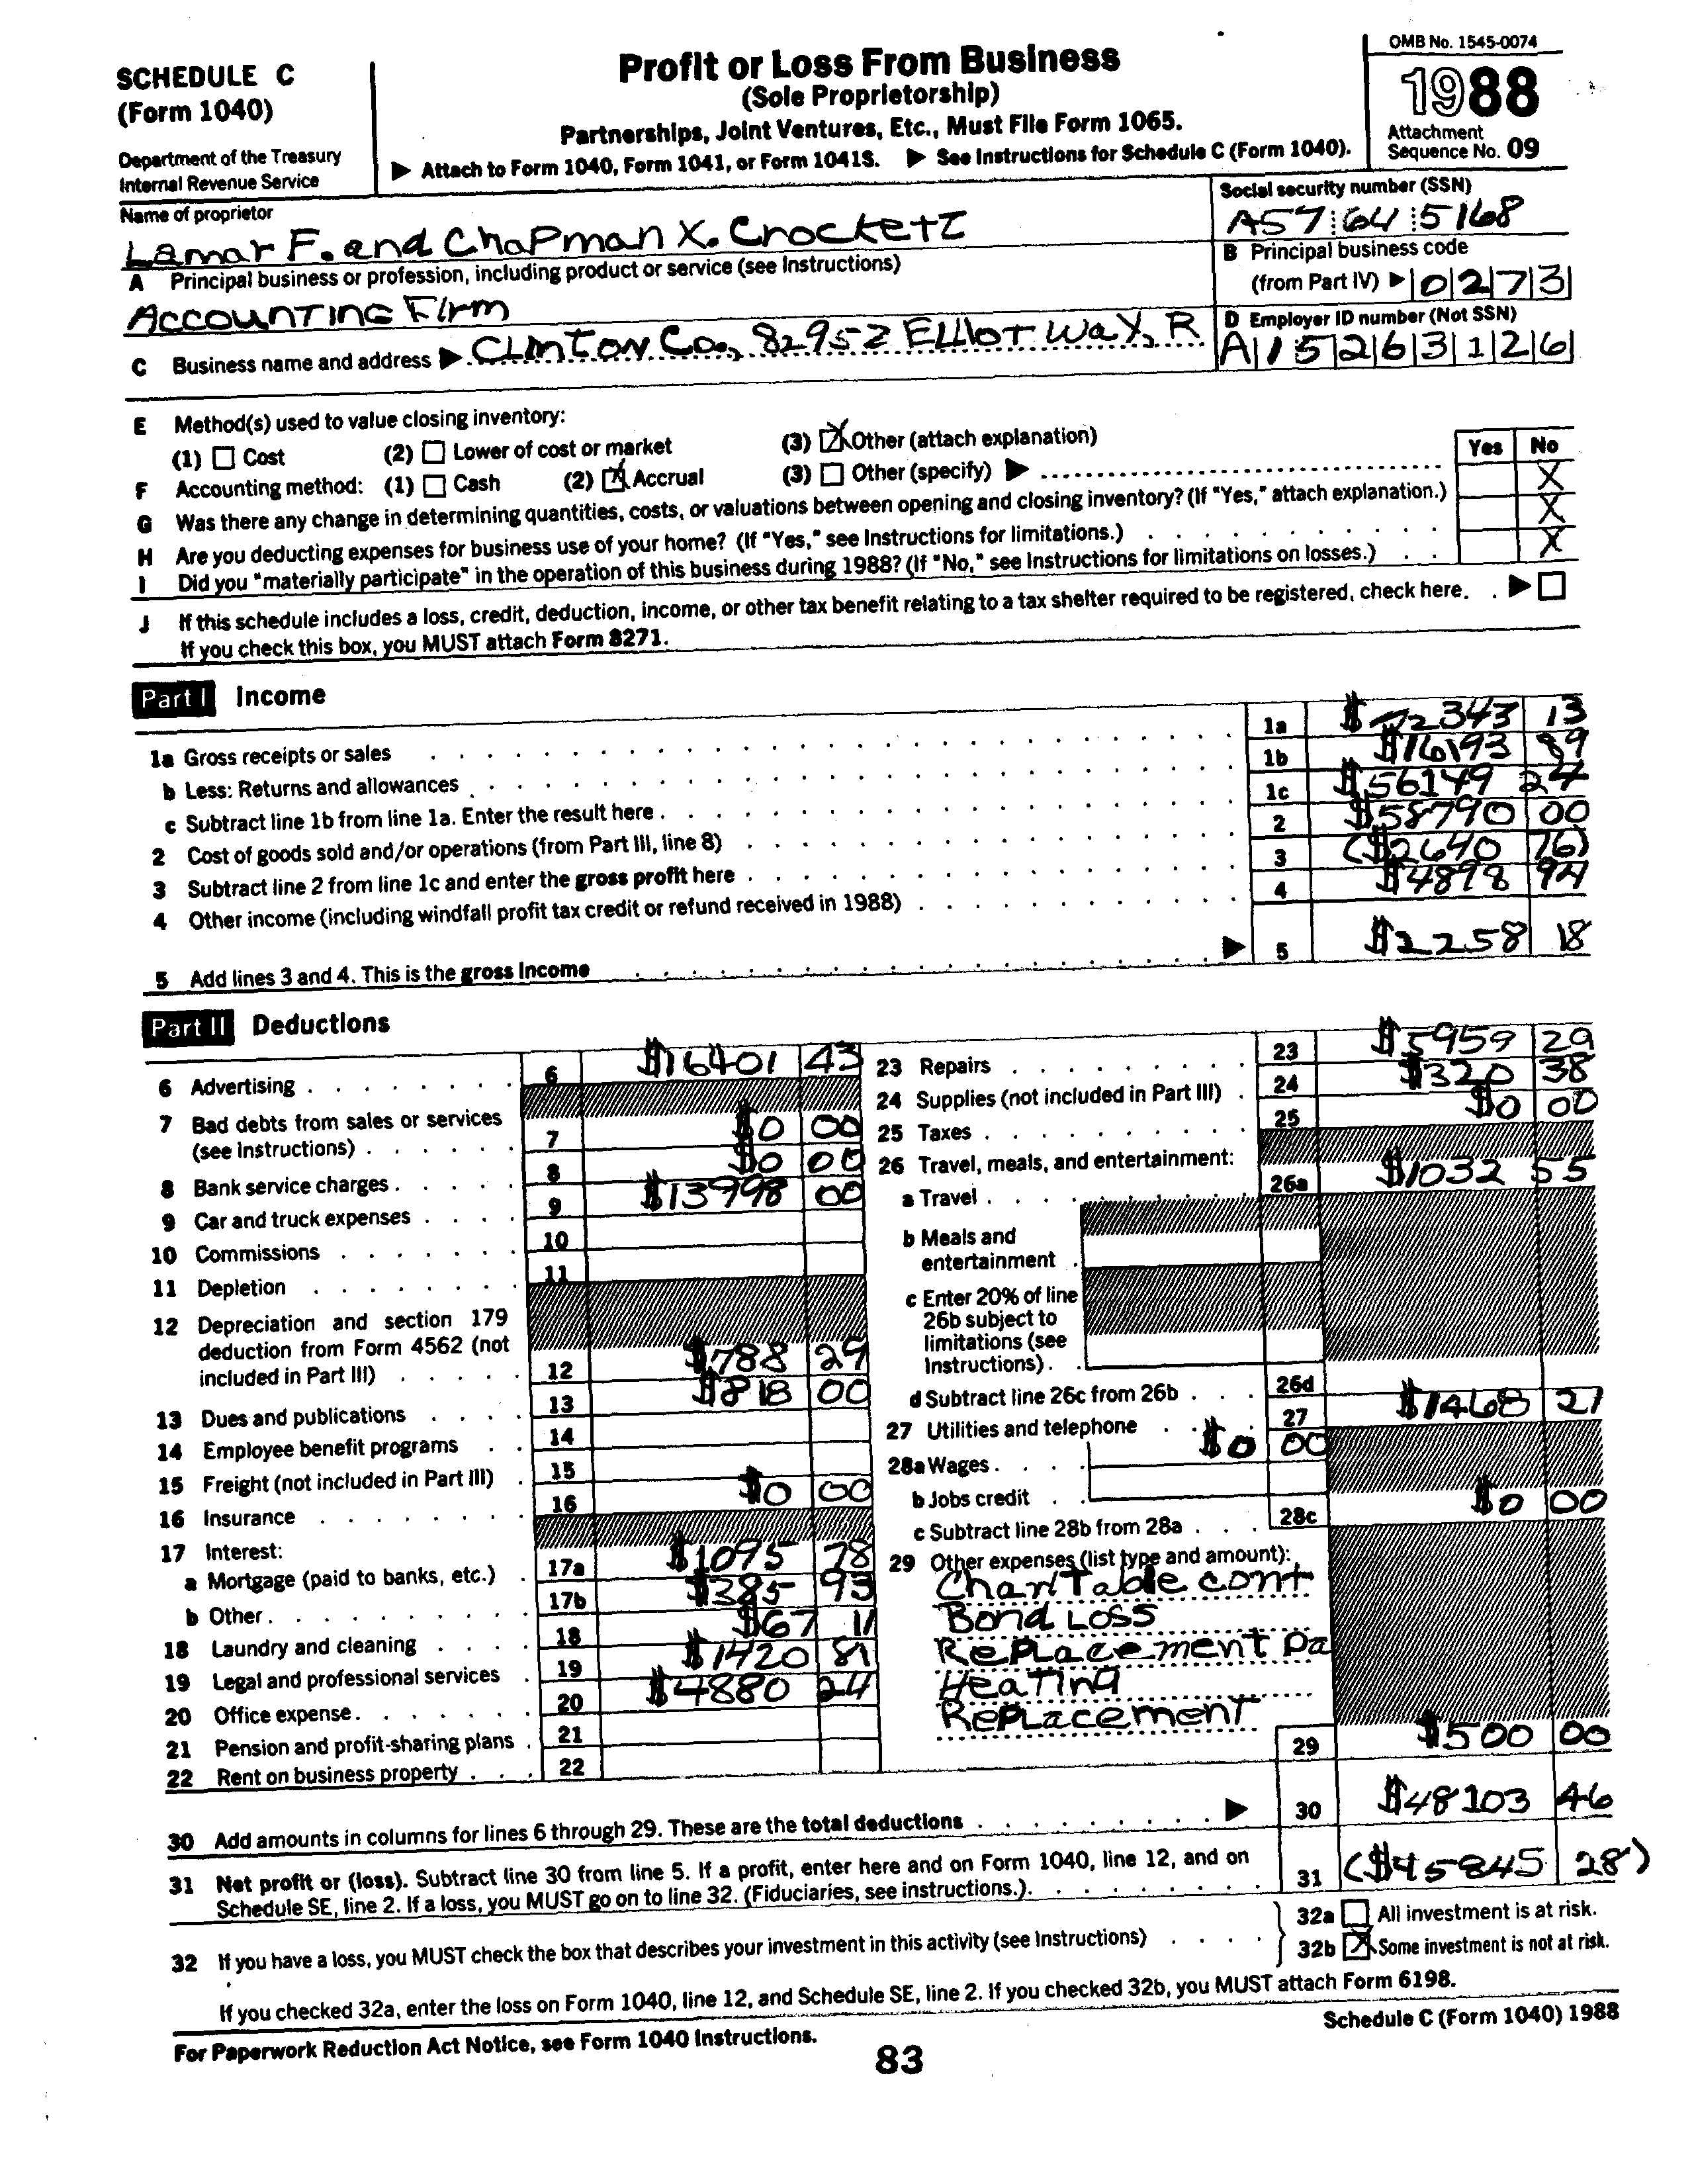 SCHEDULE C
(Form 1040)
Department of the Treasury
Internal Revenue Service
Profit or Loss From Business
(Sole Proprietorship)
Partnerships, Joint Ventures, Etc., Must File Form 1065.
▶ Attach to Form 1040, Form 1041, or Form 1041S. ▶ See Instructions for Schedule C (Form 1040).
OMB No. 1545-0074
1988
Attachment
Sequence No. 09
Name of proprietor
Lamar F. and Chapman X. Crockett
Social security number (SSN)
A57 64 5168
A Principal business or profession, including product or service (see Instructions)
Accounting Firm
B Principal business code
(from Part IV) ▶ 0273
C Business name and address ▶ Clinton Co., 82952 Elliot Way, R
D Employer ID number (Not SSN)
A15263126
E Method(s) used to value closing inventory:
(1) Cost (2) Lower of cost or market (3) X Other (attach explanation)
F Accounting method: (1) Cash (2) X Accrual (3) Other (specify) ▶
Yes No
G Was there any change in determining quantities, costs, or valuations between opening and closing inventory? (If "Yes," attach explanation.) X
H Are you deducting expenses for business use of your home? (If "Yes," see Instructions for limitations.) X
I Did you "materially participate" in the operation of this business during 1988? (If "No," see Instructions for limitations on losses.) X
J If this schedule includes a loss, credit, deduction, income, or other tax benefit relating to a tax shelter required to be registered, check here. ▶
If you check this box, you MUST attach Form 8271.
Part I Income
1a Gross receipts or sales 1a $72343 13
b Less: Returns and allowances 1b $16193 89
c Subtract line 1b from line 1a. Enter the result here 1c $56149 24
2 Cost of goods sold and/or operations (from Part III, line 8) 2 $58790 00
3 Subtract line 2 from line 1c and enter the gross profit here 3 ($2640 76)
4 Other income (including windfall profit tax credit or refund received in 1988) 4 $4898 94
5 Add lines 3 and 4. This is the gross income ▶ 5 $2258 18
Part II Deductions
6 Advertising 6 $16401 43
7 Bad debts from sales or services
(see Instructions) 7 $0 00
8 Bank service charges 8 $0 00
9 Car and truck expenses 9 $13998 00
10 Commissions 10
11 Depletion 11
12 Depreciation and section 179
deduction from Form 4562 (not
included in Part III) 12 $788 29
13 Dues and publications 13 $818 00
14 Employee benefit programs 14
15 Freight (not included in Part III) 15
16 Insurance 16 $0 00
17 Interest:
a Mortgage (paid to banks, etc.) 17a $1095 78
b Other 17b $385 93
18 Laundry and cleaning 18 $67 11
19 Legal and professional services 19 $1420 81
20 Office expense 20 $4880 24
21 Pension and profit-sharing plans 21
22 Rent on business property 22
23 Repairs 23 $5959 29
24 Supplies (not included in Part III) 24 $320 38
25 Taxes 25 $0 00
26 Travel, meals, and entertainment:
a Travel 26a $1032 55
b Meals and
entertainment
c Enter 20% of line
26b subject to
limitations (see
Instructions)
d Subtract line 26c from 26b 26d
27 Utilities and telephone 27 $1468 27
28a Wages $0 00
b Jobs credit
c Subtract line 28b from 28a 28c $0 00
29 Other expenses (list type and amount):
Charitable cont
Bond Loss
Replacement Pa
Heating
Replacement
29 $500 00
30 Add amounts in columns for lines 6 through 29. These are the total deductions ▶ 30 $48103 46
31 Net profit or (loss). Subtract line 30 from line 5. If a profit, enter here and on Form 1040, line 12, and on
Schedule SE, line 2. If a loss, you MUST go on to line 32. (Fiduciaries, see instructions.) 31 ($45845 28)
32 If you have a loss, you MUST check the box that describes your investment in this activity (see Instructions)
32a All investment is at risk.
32b X Some investment is not at risk.
If you checked 32a, enter the loss on Form 1040, line 12, and Schedule SE, line 2. If you checked 32b, you MUST attach Form 6198.
For Paperwork Reduction Act Notice, see Form 1040 Instructions.
Schedule C (Form 1040) 1988
83